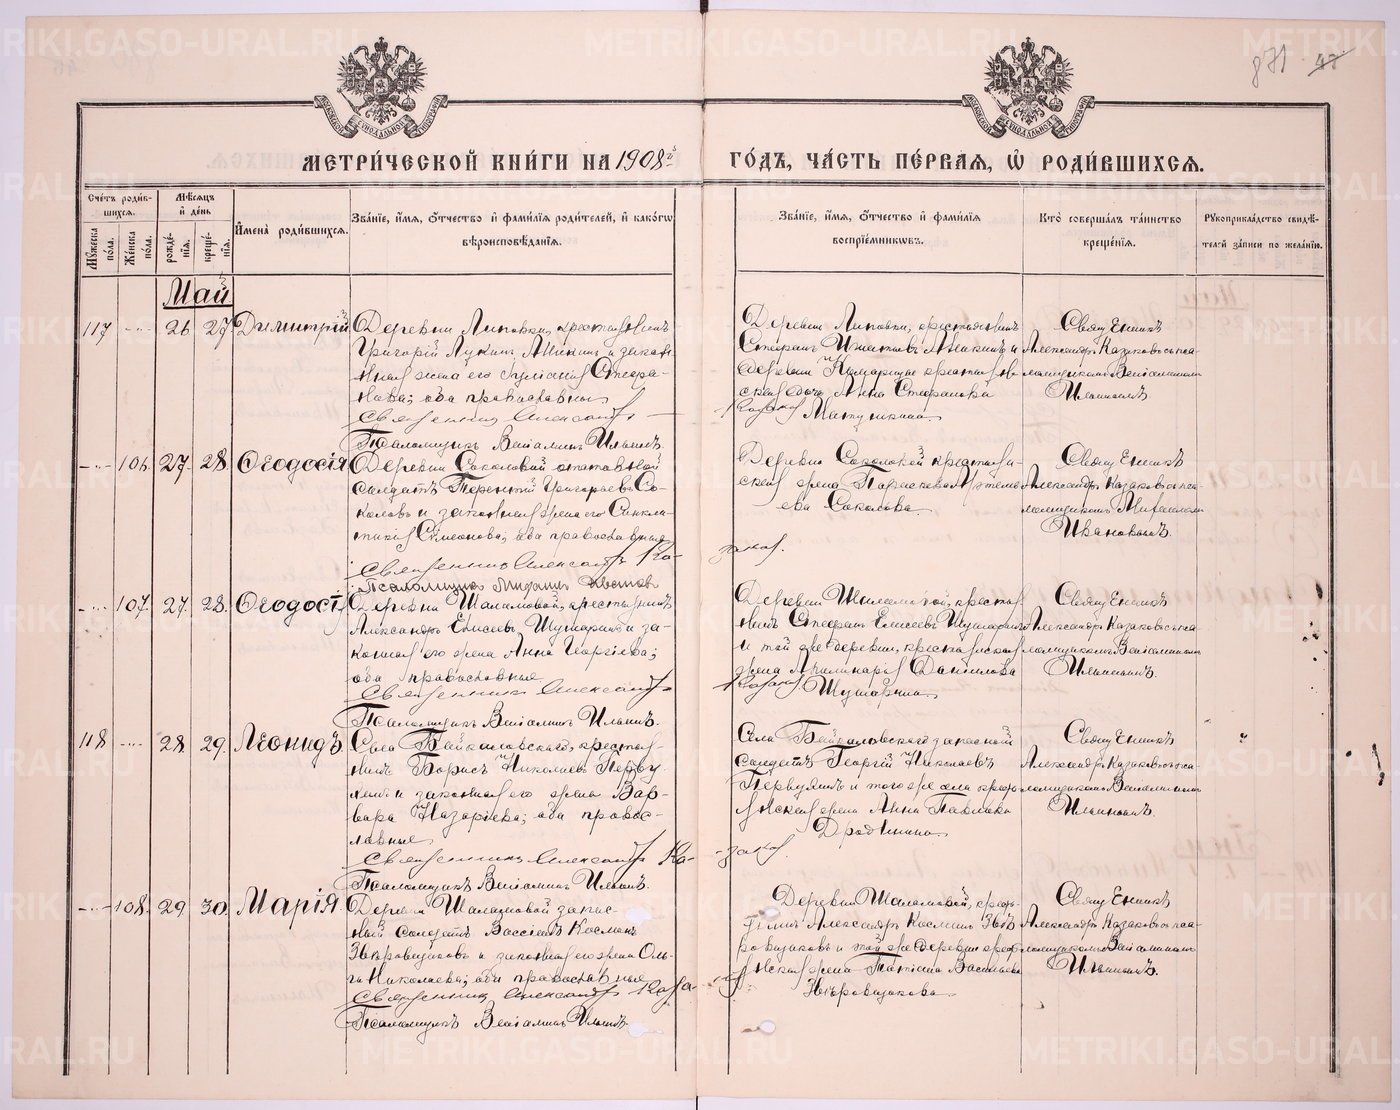 871 47
МОСКОВСКОЙ СѴНОДАЛЬНОЙ ТИПОГРАФІИ
МОСКОВСКОЙ СѴНОДАЛЬНОЙ ТИПОГРАФІИ
МЕТРИ́ЧЕСКОЙ КНИ́ГИ НА 1908й ГО́ДЪ, ЧА́СТЬ ПЕ́РВАѦ, Ѡ҆ РОДИ́ВШИХСѦ.
Сче́тъ роди́в-
шихсѧ.
Мꙋ́жеска по́ла.
Же́нска по́ла.
Мѣ́сѧцъ
и҆ де́нь
рожде́-
нїѧ.
креще́-
нїѧ.
И҆мена̀ роди́вшихсѧ.
Зва́нїе, и҆́мѧ, ѻ҆́тчество и҆ фами́лїѧ роди́телей, и҆ како́гѡ
вѣроисповѣ́данїѧ.
Зва́нїе, и҆́мѧ, ѻ҆́тчество и҆ фами́лїѧ
воспрїе́мникѡвъ.
Кто̀ соверша́лъ та́инство
креще́нїѧ.
Рꙋкоприкла́дство свидѣ́-
телей за́писи по жела́нїю.
Май
117 26 27 Димитрій
Деревни Липовки, крестьянинъ
Григорій Лукинъ Аникинъ и закон-
ная жена его Іуліанія Стефа-
нова; оба православные
Священникъ Александръ Казаковъ
Псаломщикъ Веніаминъ Ильинъ.
Деревни Липовки, крестьянинъ
Стефанъ Игнатьевъ Аникинъ и
деревни
ская дочь Анна Стефанова
Матушкина.
Священникъ
Александръ Казаковъ съ пса-
ломщикомъ Веніаминомъ
Ильинымъ.
106. 27. 28. Ѳеодосія
Деревни Соколовой отставной
солдатъ Терентій Григорьевъ Со-
коловъ и законная жена его Синкли-
тикія Симеонова; оба православные
Священникъ Александръ Ка-
заковъ.
Псаломщикъ
Деревни Соколовой крестьян-
ская жена Параскева
ева Соколова.
Священникъ
Александръ Казаковъ съ пса-
ломщикомъ
Ивановымъ.
107. 27. 28. Ѳеодосія
Деревни Шаламовой, крестьянинъ
Александръ Елисеевъ Шушаринъ и за-
конная его жена Анна Георгіева;
оба православные
Священникъ Александръ Казаковъ
Псаломщикъ Веніаминъ Ильинъ.
Деревни Шаламовой, крестья-
нинъ Стефанъ Елисеевъ Шушаринъ
и той же деревни, крестьянская
жена Аполинарія Даніилова
Шушарина.
Священникъ
Александръ Казаковъ съ пса-
ломщикомъ Веніаминомъ
Ильинымъ.
118 28 29. Леонидъ
Села Байкаловскаго, крестья-
нинъ Борисъ Николаевъ Перву-
хинъ и законная его жена Вар-
вара Назаріева; оба правос-
лавные
Священникъ Александръ Ка-
заковъ.
Псаломщикъ Веніаминъ Ильинъ.
Села Байкаловскаго запасной
солдатъ Георгій Николаевъ
и того же села крестья-
нская жена Анна Павлова
Дробинина.
Священникъ
Александръ Казаковъ съ пса-
ломщикомъ Веніаминомъ
Ильинымъ.
108. 29. 30. Марія
Деревни Шаламовой запас-
ный солдатъ Вассіанъ Косминъ
и законная его жена Оль-
га Николаева; оба православные
Священникъ Александръ Казаковъ
Псаломщикъ Веніаминъ Ильинъ.
Деревни Шаламовой, крес-
тьянинъ Александръ Косминъ
и той же деревни крестья-
нская жена Татіана Васильева
Священникъ
Александръ Казаковъ съ пса-
ломщикомъ Веніаминомъ
Ильинымъ.
METRIKI.GASO-URAL.RU